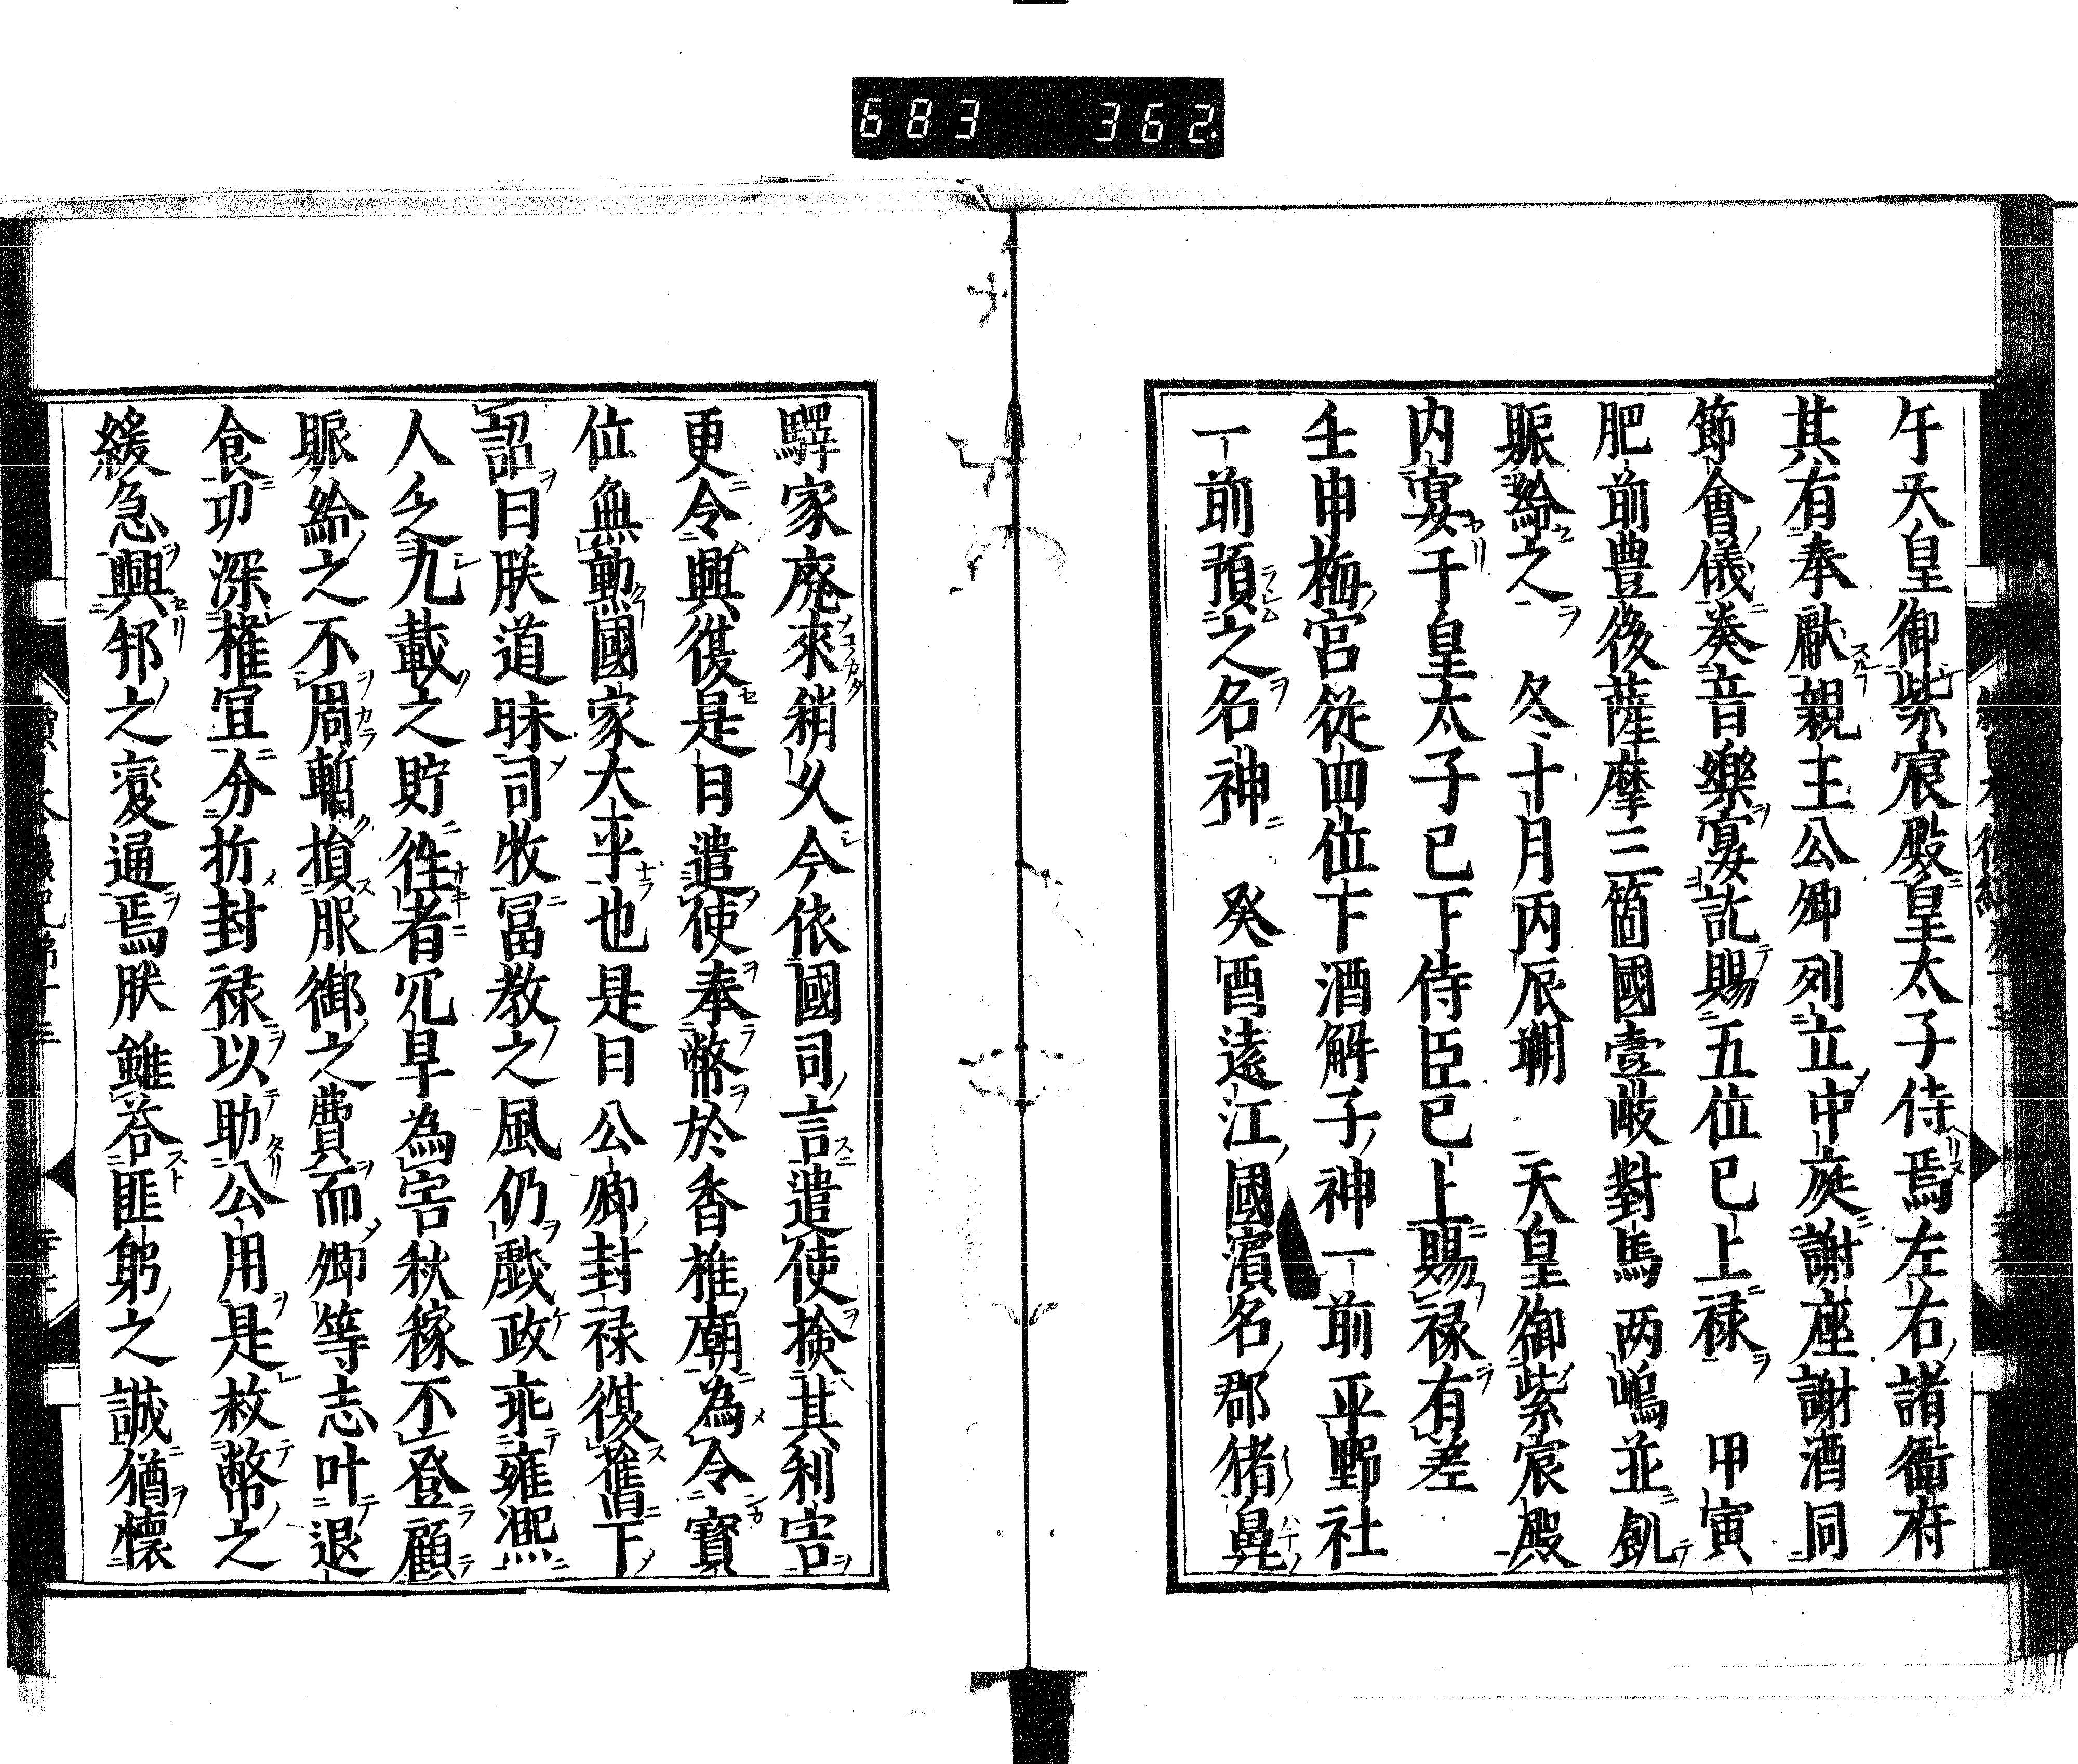 683 362
午天皇御紫宸殿皇太子侍焉左右諸衞府
其有奉獻親王公卿列立中庭謝座謝酒同
節會儀奏音樂宴訖賜五位已上禄 甲寅
肥前豊後薩摩三箇國壹岐對馬两嶋並飢
賑給之 冬十月丙辰朔 天皇御紫宸殿
内宴于皇太子已下侍臣已上賜禄有差
壬申梅宮從四位下酒解子神一前平野社
一前預之名神 癸酉遠江國濱名郡猪鼻
驛家廃來稍久今依國司言遣使撿其利害
更令興復是日遣使奉幣於香椎廟為令寳
位無動國家大平也是日公卿封禄復舊下
詔曰朕道昧司牧冨教之風仍戲政乖雍凞
人乏九載之貯往者冗旱為害秋稼不登顧
賑給之不周暫損服御之費而卿等志叶退
食功深權宜分折封禄以助公用是救幣之
緩急興邦之變通焉朕雖荅匪躬之誠猶懐